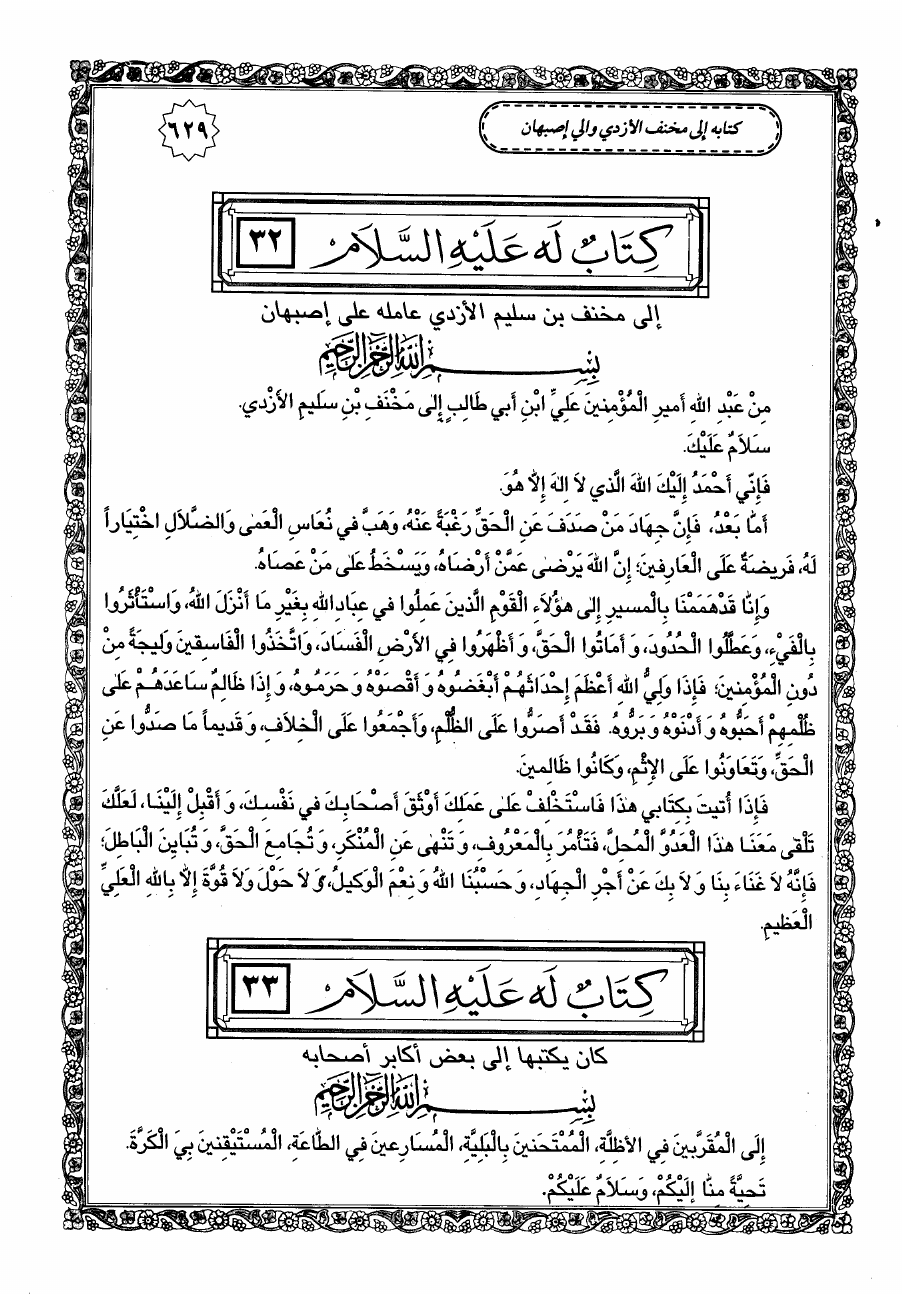 كتابه إلى مخنف الأزدي والي إصبهان
٦٢٩
كِتَابٌ لَه عَلَيْهِ السَّلَام ٣٢
إلى مخنف بن سليم الأزدي عامله على إصبهان
بِسْمِ اللهِ الرَّحْمٰنِ الرَّحِيمِ
مِنْ عَبْدِ اللهِ أَميرِ الْمُؤْمِنينَ عَلِيِّ ابْنِ أَبي طَالِبٍ إِلى مَخْنَفِ بْنِ سَليمِ الأَزْدي.
سَلاَمٌ عَلَيْكَ.
فَإِنّي أَحْمَدُ إِلَيْكَ اللهَ الَّذي لاَ إِلهَ إِلاَّ هُوَ.
أَمَّا بَعْدُ، فَإِنَّ جِهَادَ مَنْ صَدَفَ عَنِ الْحَقِّ رَغْبَةً عَنْهُ، وَهَبَّ في نُعَاسِ الْعَمٰى وَالضَّلَالِ اخْتِيَاراً
لَهُ، فَريضَةٌ عَلَى الْعَارِفينَ؛ إِنَّ اللهَ يَرْضى عَمَّنْ أَرْضَاهُ، وَيَسْخَطُ عَلٰى مَنْ عَصَاهُ.
وَإِنَّا قَدْ هَمَمْنَا بِالْمَسيرِ إِلى هٰؤُلاَءِ الْقَوْمِ الَّذينَ عَمِلُوا في عِبَادِ اللهِ بِغَيْرِ مَا أَنْزَلَ اللهُ، وَاسْتَأْثَرُوا
بِالْفَيْءِ، وَعَطَّلُوا الْحُدُودَ، وَ أَمَاتُوا الْحَقَّ، وَ أَظْهَرُوا فِي الأَرْضِ الْفَسَادَ، وَاتَّخَذُوا الْفَاسِقينَ وَليجَةً مِنْ
دُونِ الْمُؤْمِنينَ؛ فَإِذَا وَلِيُّ اللهِ أَعْظَمَ إِحْدَاثَهُمْ أَبْغَضُوهُ وَ أَقْصَوْهُ وَ حَرَمُوهُ، وَ إِذَا ظَالِمٌ سَاعَدَهُمْ عَلٰى
ظُلْمِهِمْ أَحَبُّوهُ وَ أَدْنَوْهُ وَ بَرُّوهُ. فَقَدْ أَصَرُّوا عَلَى الظُّلْمِ، وَأَجْمَعُوا عَلَى الْخِلاَفِ، وَ قَديماً مَا صَدُّوا عَنِ
الْحَقِّ، وَتَعَاوَنُوا عَلَى الإِثْمِ، وَكَانُوا ظَالِمينَ.
فَإِذَا أُتيتَ بِكِتَابي هٰذَا فَاسْتَخْلِفْ عَلٰى عَمَلِكَ أَوْثَقَ أَصْحَابِكَ في نَفْسِكَ، وَ أَقْبِلْ إِلَيْنَا، لَعَلَّكَ
تَلْقى مَعَنَا هٰذَا الْعَدُوَّ الْمُحِلَّ، فَتَأْمُرَ بِالْمَعْرُوفِ، وَ تَنْهٰى عَنِ الْمُنْكَرِ، وَ تُجَامِعَ الْحَقَّ، وَ تُبَايِنَ الْبَاطِلَ؛
فَإِنَّهُ لاَ غَنَاءَ بِنَا وَ لاَ بِكَ عَنْ أَجْرِ الْجِهَادِ، وَ حَسْبُنَا اللهُ وَ نِعْمَ الْوَكيلُ، وَ لاَ حَوْلَ وَلاَ قُوَّةَ إِلاَّ بِاللهِ الْعَلِيِّ
الْعَظيمِ.
كِتَابٌ لَه عَلَيْهِ السَّلَام ٣٣
كان يكتبها إلى بعض أكابر أصحابه
بِسْمِ اللهِ الرَّحْمٰنِ الرَّحِيمِ
إِلَى الْمُقَرَّبينَ فِي الأَظِلَّةِ، الْمُمْتَحَنينَ بِالْبَلِيَّةِ، الْمُسَارِعينَ فِي الطَّاعَةِ، الْمُسْتَيْقِنينَ بِيَ الْكَرَّةَ.
تَحِيَّةً مِنَّا إِلَيْكُمْ، وَسَلاَمٌ عَلَيْكُمْ.